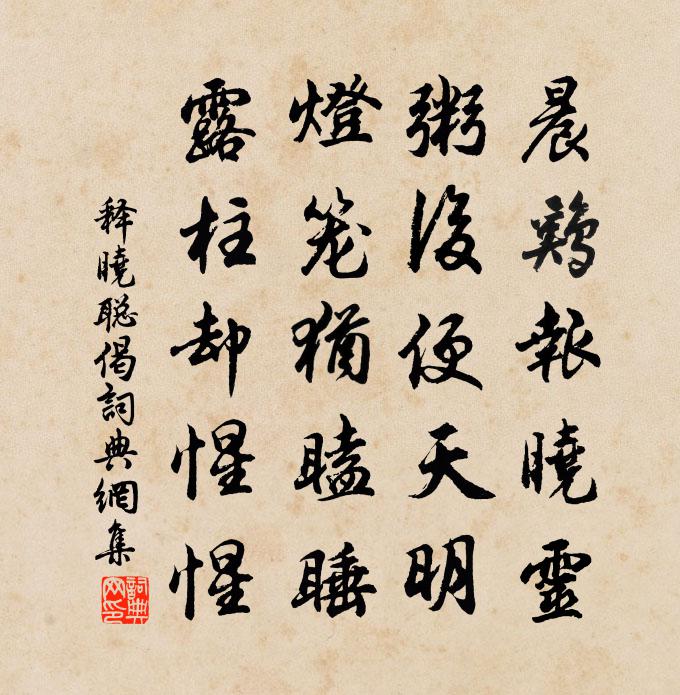 晨鷄報曉靈
粥後便天明
燈笼猶瞌睡
露柱却惺惺
释曉聪偈詞典網集
詞典
网印